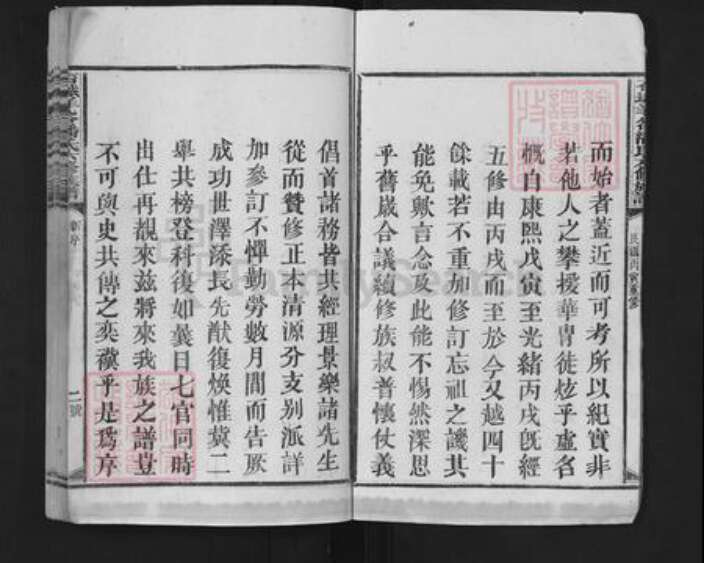 而始者蓋近而可考所以紀實非
若他人之攀援華冑徒炫乎虛名
概自康熙戊寅至光緒丙戌旣經
五修由丙戌而至於今又越四十
餘載若不重加修訂忘祖之譏其
能免歟言念及此能不惕然深思
乎舊歲合議續修族叔普懷仗義
倡首諸務皆共經理景樂諸先生
從而贊修正本清源分支别派詳
加參訂不憚勤勞數月間而告厥
成功世澤添長先猷復煥惟冀二
舉共榜登科復如曩日七官同時
出仕再覩來兹將來我族之譜豈
不可與史共傳之奕禩乎是爲序
二號
FamilySearch